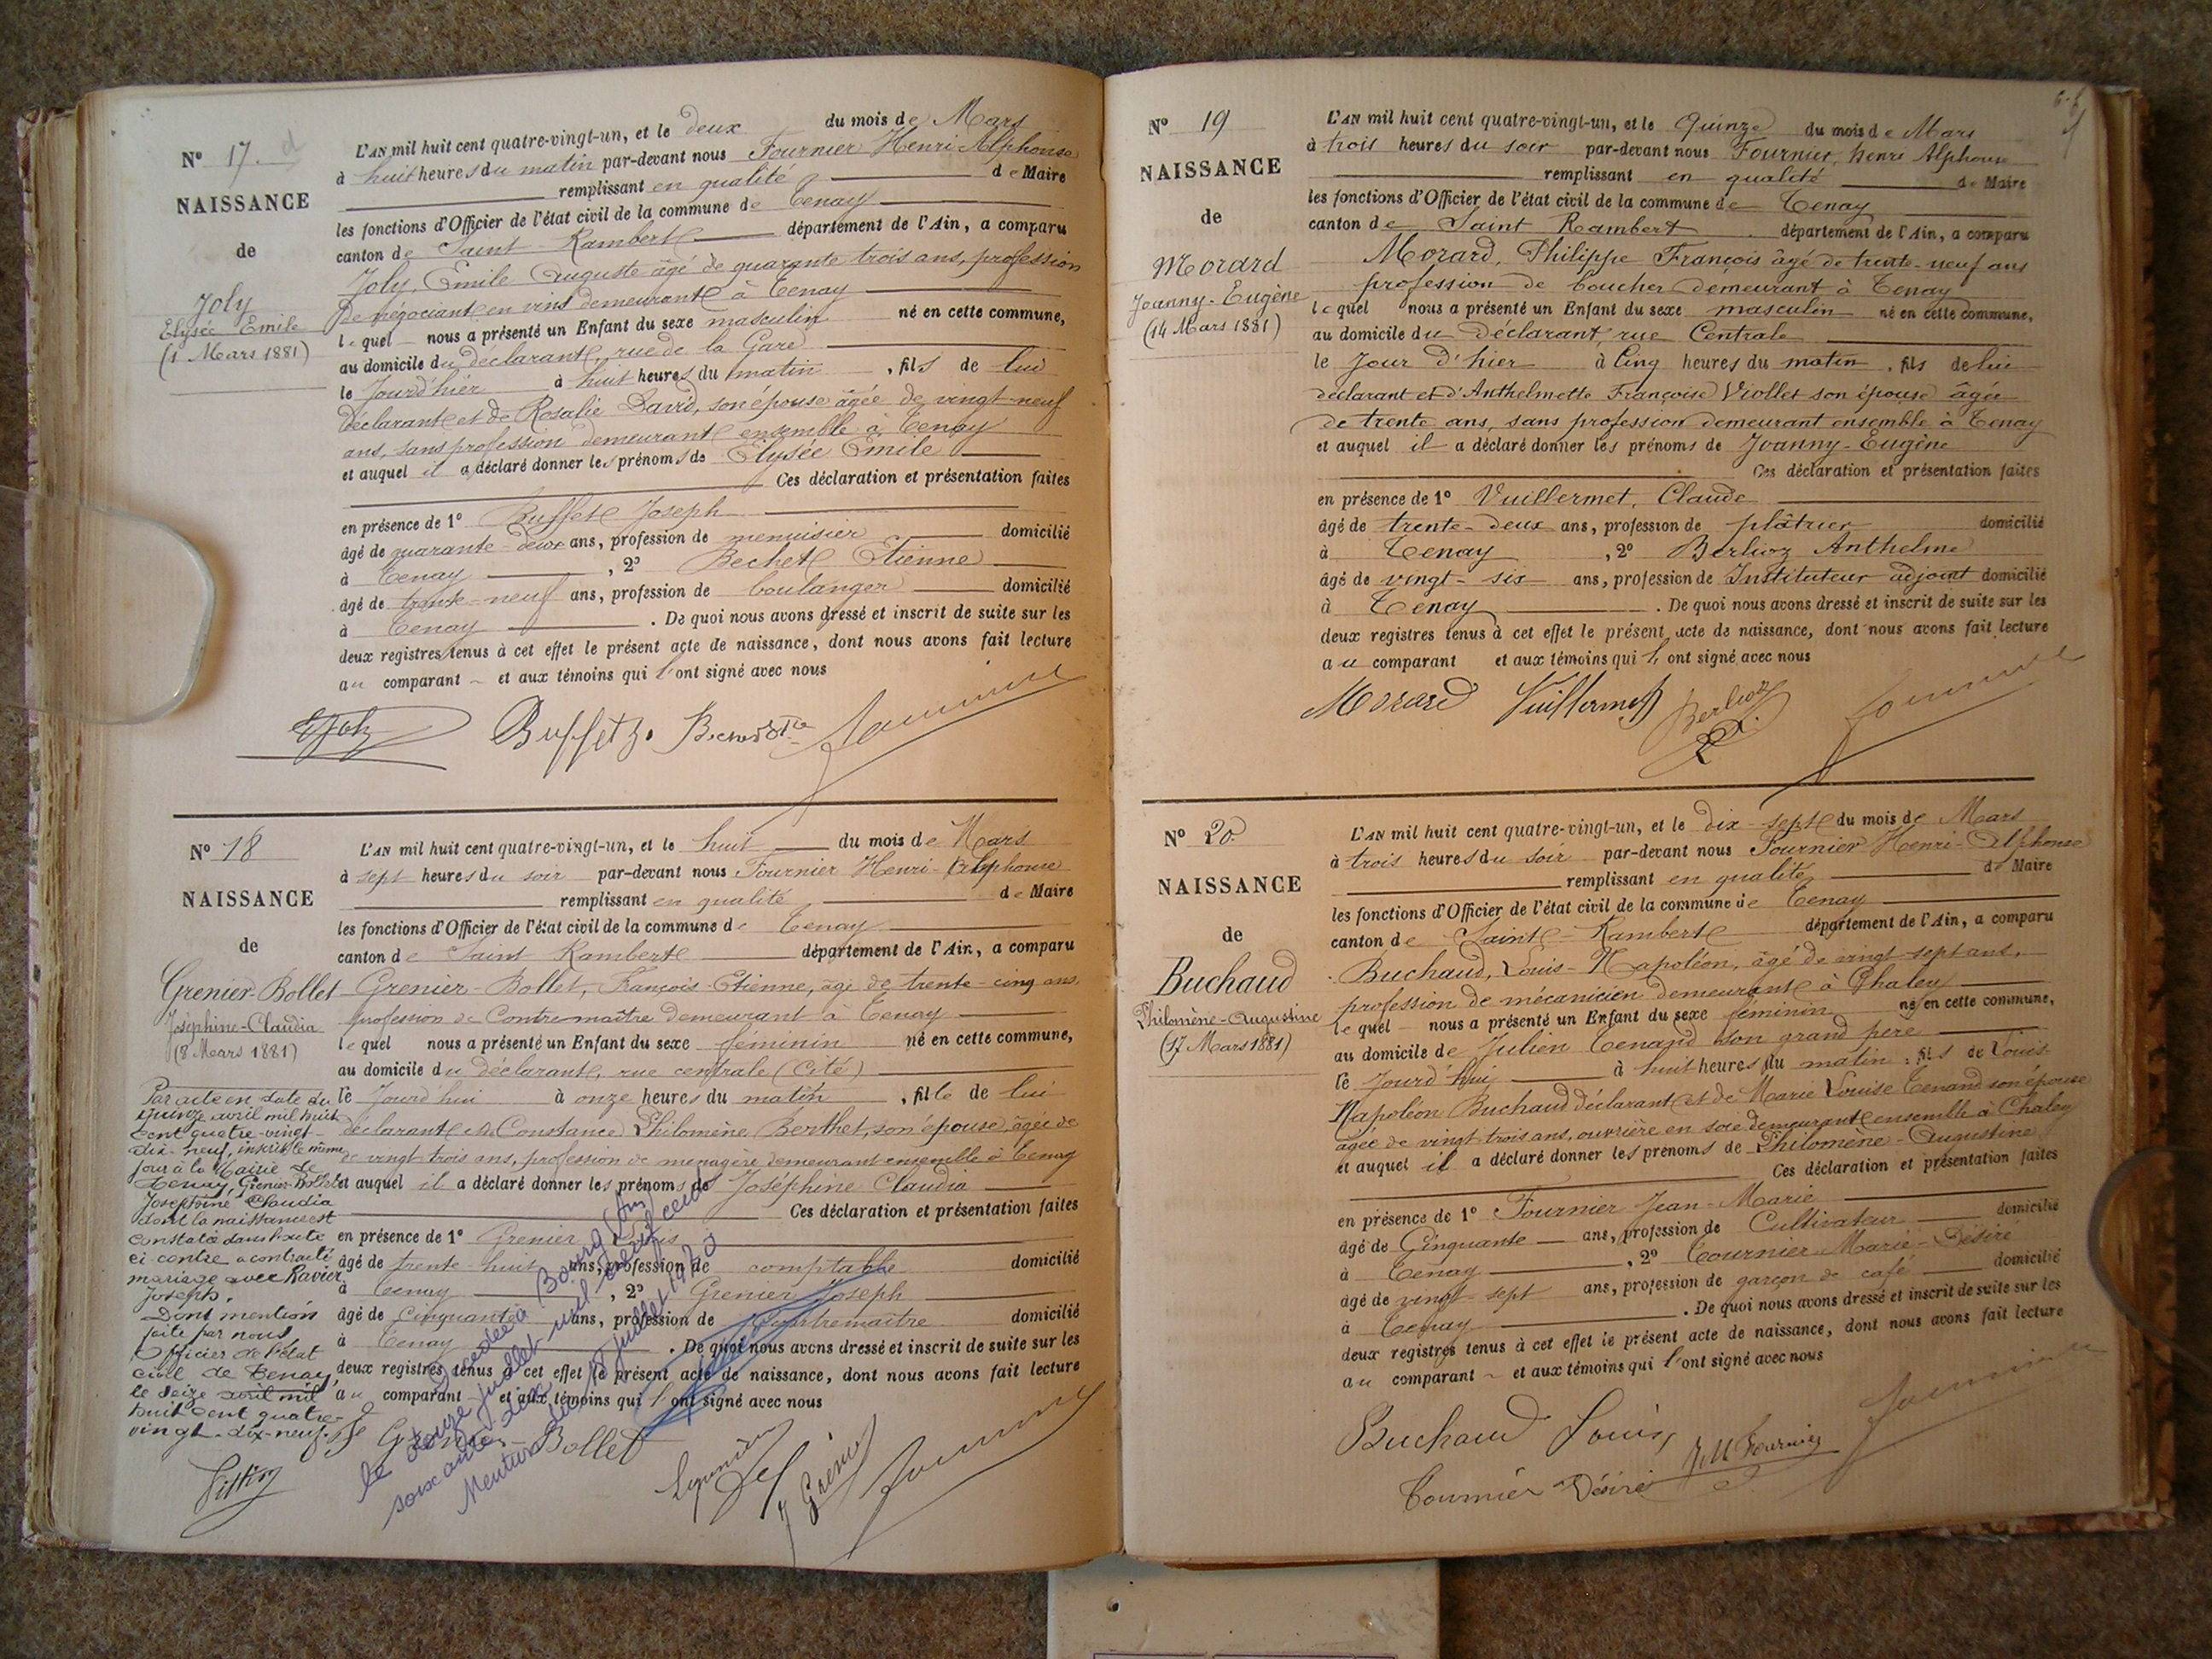 N° 17.
NAISSANCE
de
Joly
Elysée Emile
(1 Mars 1881)
L'AN mil huit cent quatre-vingt-un, et le deux du mois de Mars
à huit heures du matin par-devant nous Fournier Henri Alphonse
remplissant en qualité de Maire
les fonctions d'Officier de l'état civil de la commune de Tenay
canton de Saint Rambert département de l'Ain, a comparu
Joly, Emile Auguste âgé de quarante trois ans, profession
de négociant en vins demeurant à Tenay
lequel nous a présenté un Enfant du sexe masculin né en cette commune,
au domicile du déclarant, rue de la Gare
le Jourd'hier à huit heures du matin, fils de lui
déclarant et de Rosalie David, son épouse âgée de vingt-neuf
ans, sans profession demeurant ensemble à Tenay
et auquel il a déclaré donner les prénoms de Elysée Emile
Ces déclaration et présentation faites
en présence de 1° Buffet Joseph
âgé de quarante-deux ans, profession de menuisier domicilié
à Tenay, 2° Bechet Etienne
âgé de trente-neuf ans, profession de boulanger domicilié
à Tenay. De quoi nous avons dressé et inscrit de suite sur les
deux registres tenus à cet effet le présent acte de naissance, dont nous avons fait lecture
au comparant et aux témoins qui l'ont signé avec nous
E Joly Buffet J. Bechet Fournier
N° 18
NAISSANCE
de
Grenier-Bollet
Joséphine-Claudia
(8 Mars 1881)
Par acte en date du
quinze avril mil huit
cent quatre-vingt-
dix-neuf, inscrit le même
jour à la Mairie de
Tenay, Grenier-Bollet
Joséphine Claudia
dont la naissance est
constatée dans l'acte
ci contre a contracté
mariage avec Ravier
Joseph.
Dont mention
faite par nous
Officier de l'état
civil de Tenay,
le seize avril mil
huit cent quatre-
vingt-dix-neuf.
L'AN mil huit cent quatre-vingt-un, et le huit du mois de Mars
à sept heures du soir par-devant nous Fournier Henri-Alphonse
remplissant en qualité de Maire
les fonctions d'Officier de l'état civil de la commune de Tenay
canton de Saint Rambert département de l'Ain, a comparu
Grenier-Bollet, François-Etienne, âgé de trente-cinq ans,
profession de Contremaître demeurant à Tenay
lequel nous a présenté un Enfant du sexe féminin né en cette commune,
au domicile du déclarant, rue centrale (Cité)
le Jourd'hui à onze heures du matin, fille de lui
déclarant et de Constance Philomène Berthet, son épouse âgée de
de vingt-trois ans, profession de menagère demeurant ensemble à Tenay
et auquel il a déclaré donner les prénoms de Joséphine Claudia
Ces déclaration et présentation faites
en présence de 1° Grenier Louis
âgé de trente-huit ans, profession de comptable domicilié
à Tenay, 2° Grenier Joseph
âgé de Cinquante ans, profession de Contremaître domicilié
à Tenay. De quoi nous avons dressé et inscrit de suite sur les
deux registres tenus à cet effet le présent acte de naissance, dont nous avons fait lecture
au comparant et aux témoins qui l'ont signé avec nous
Décédée à Bourg (Ain)
le douze juillet mil neuf cent
soixante dix
Mention du 15 juillet 1970
Grenier-Bollet J Grenier Fournier
N° 19
NAISSANCE
de
Morard
Joanny-Eugène
(14 Mars 1881)
L'AN mil huit cent quatre-vingt-un, et le Quinze du mois de Mars
à trois heures du soir par-devant nous Fournier, henri Alphonse
remplissant en qualité de Maire
les fonctions d'Officier de l'état civil de la commune de Tenay
canton de Saint Rambert département de l'Ain, a comparu
Morard, Philippe François âgé de trente-neuf ans
profession de boucher demeurant à Tenay
lequel nous a présenté un Enfant du sexe masculin né en cette commune,
au domicile du Déclarant, rue Centrale
le Jour d'hier à Cinq heures du matin, fils de lui
déclarant et d'Anthelmette Françoise Viollet son épouse âgée
de trente ans, sans profession demeurant ensemble à Tenay
et auquel il a déclaré donner les prénoms de Joanny-Eugène
Ces déclaration et présentation faites
en présence de 1° Vuillermet, Claude
âgé de trente-deux ans, profession de plâtrier domicilié
à Tenay, 2° Berlioz Anthelme
âgé de vingt-six ans, profession de Instituteur adjoint domicilié
à Tenay. De quoi nous avons dressé et inscrit de suite sur les
deux registres tenus à cet effet le présent acte de naissance, dont nous avons fait lecture
au comparant et aux témoins qui l'ont signé avec nous
Morard Vuillermet Berlioz Fournier
N° 20.
NAISSANCE
de
Buchaud
Philomène-Augustine
(17 Mars 1881)
L'AN mil huit cent quatre-vingt-un, et le dix-sept du mois de Mars
à trois heures du soir par-devant nous Fournier Henri-Alphonse
remplissant en qualité de Maire
les fonctions d'Officier de l'état civil de la commune de Tenay
canton de Saint-Rambert département de l'Ain, a comparu
Buchaud, Louis-Napoléon, âgé de vingt-sept ans,
profession de mécanicien demeurant à Chaley
lequel nous a présenté un Enfant du sexe féminin né en cette commune,
au domicile de Julien Tenand son grand père
le Jourd'hui à huit heures du matin, fils de Louis
Napoléon Buchaud déclarant et de Marie Louise Tenand son épouse
âgée de vingt trois ans, ouvrière en soie demeurant ensemble à Chaley
et auquel il a déclaré donner les prénoms de Philomène-Augustine
Ces déclaration et présentation faites
en présence de 1° Fournier Jean-Marie
âgé de Cinquante ans, profession de Cultivateur domicilié
à Tenay, 2° Tournier Marie-Désiré
âgé de vingt-sept ans, profession de garçon de café domicilié
à Tenay. De quoi nous avons dressé et inscrit de suite sur les
deux registres tenus à cet effet le présent acte de naissance, dont nous avons fait lecture
au comparant et aux témoins qui l'ont signé avec nous
Buchaud Louis J M Fournier Fournier
Tournier Désiré